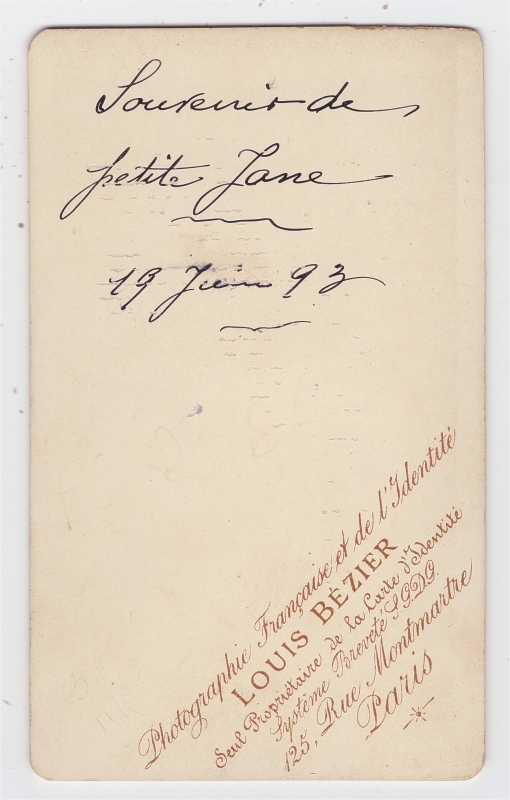 Souvenir de
petite Jane
19 Juin 93
Photographie Française et de l'Identité
LOUIS BÉZIER
Seul Propriétaire de la Carte d'Identité
Système Breveté S.G.D.G.
125, Rue Montmartre
Paris